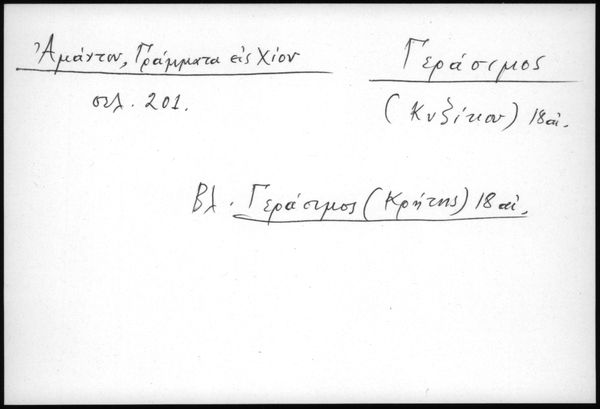 Ἀμάντου, Γράμματα εἰς Χίον
σελ. 201.
Γεράσιμος
(Κυζίκου) 18 αἰ.
Βλ. Γεράσιμος (Κρήτης) 18 αἰ.